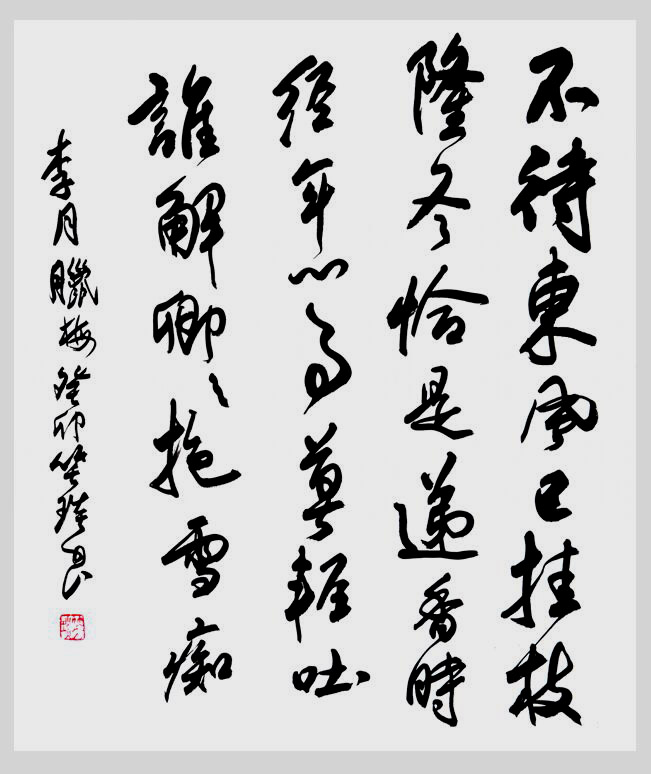 不待東風已挂枝
隆冬恰是遞香時
經年心事莫輕吐
誰解卿卿抱雪痴
李月臘梅癸卯